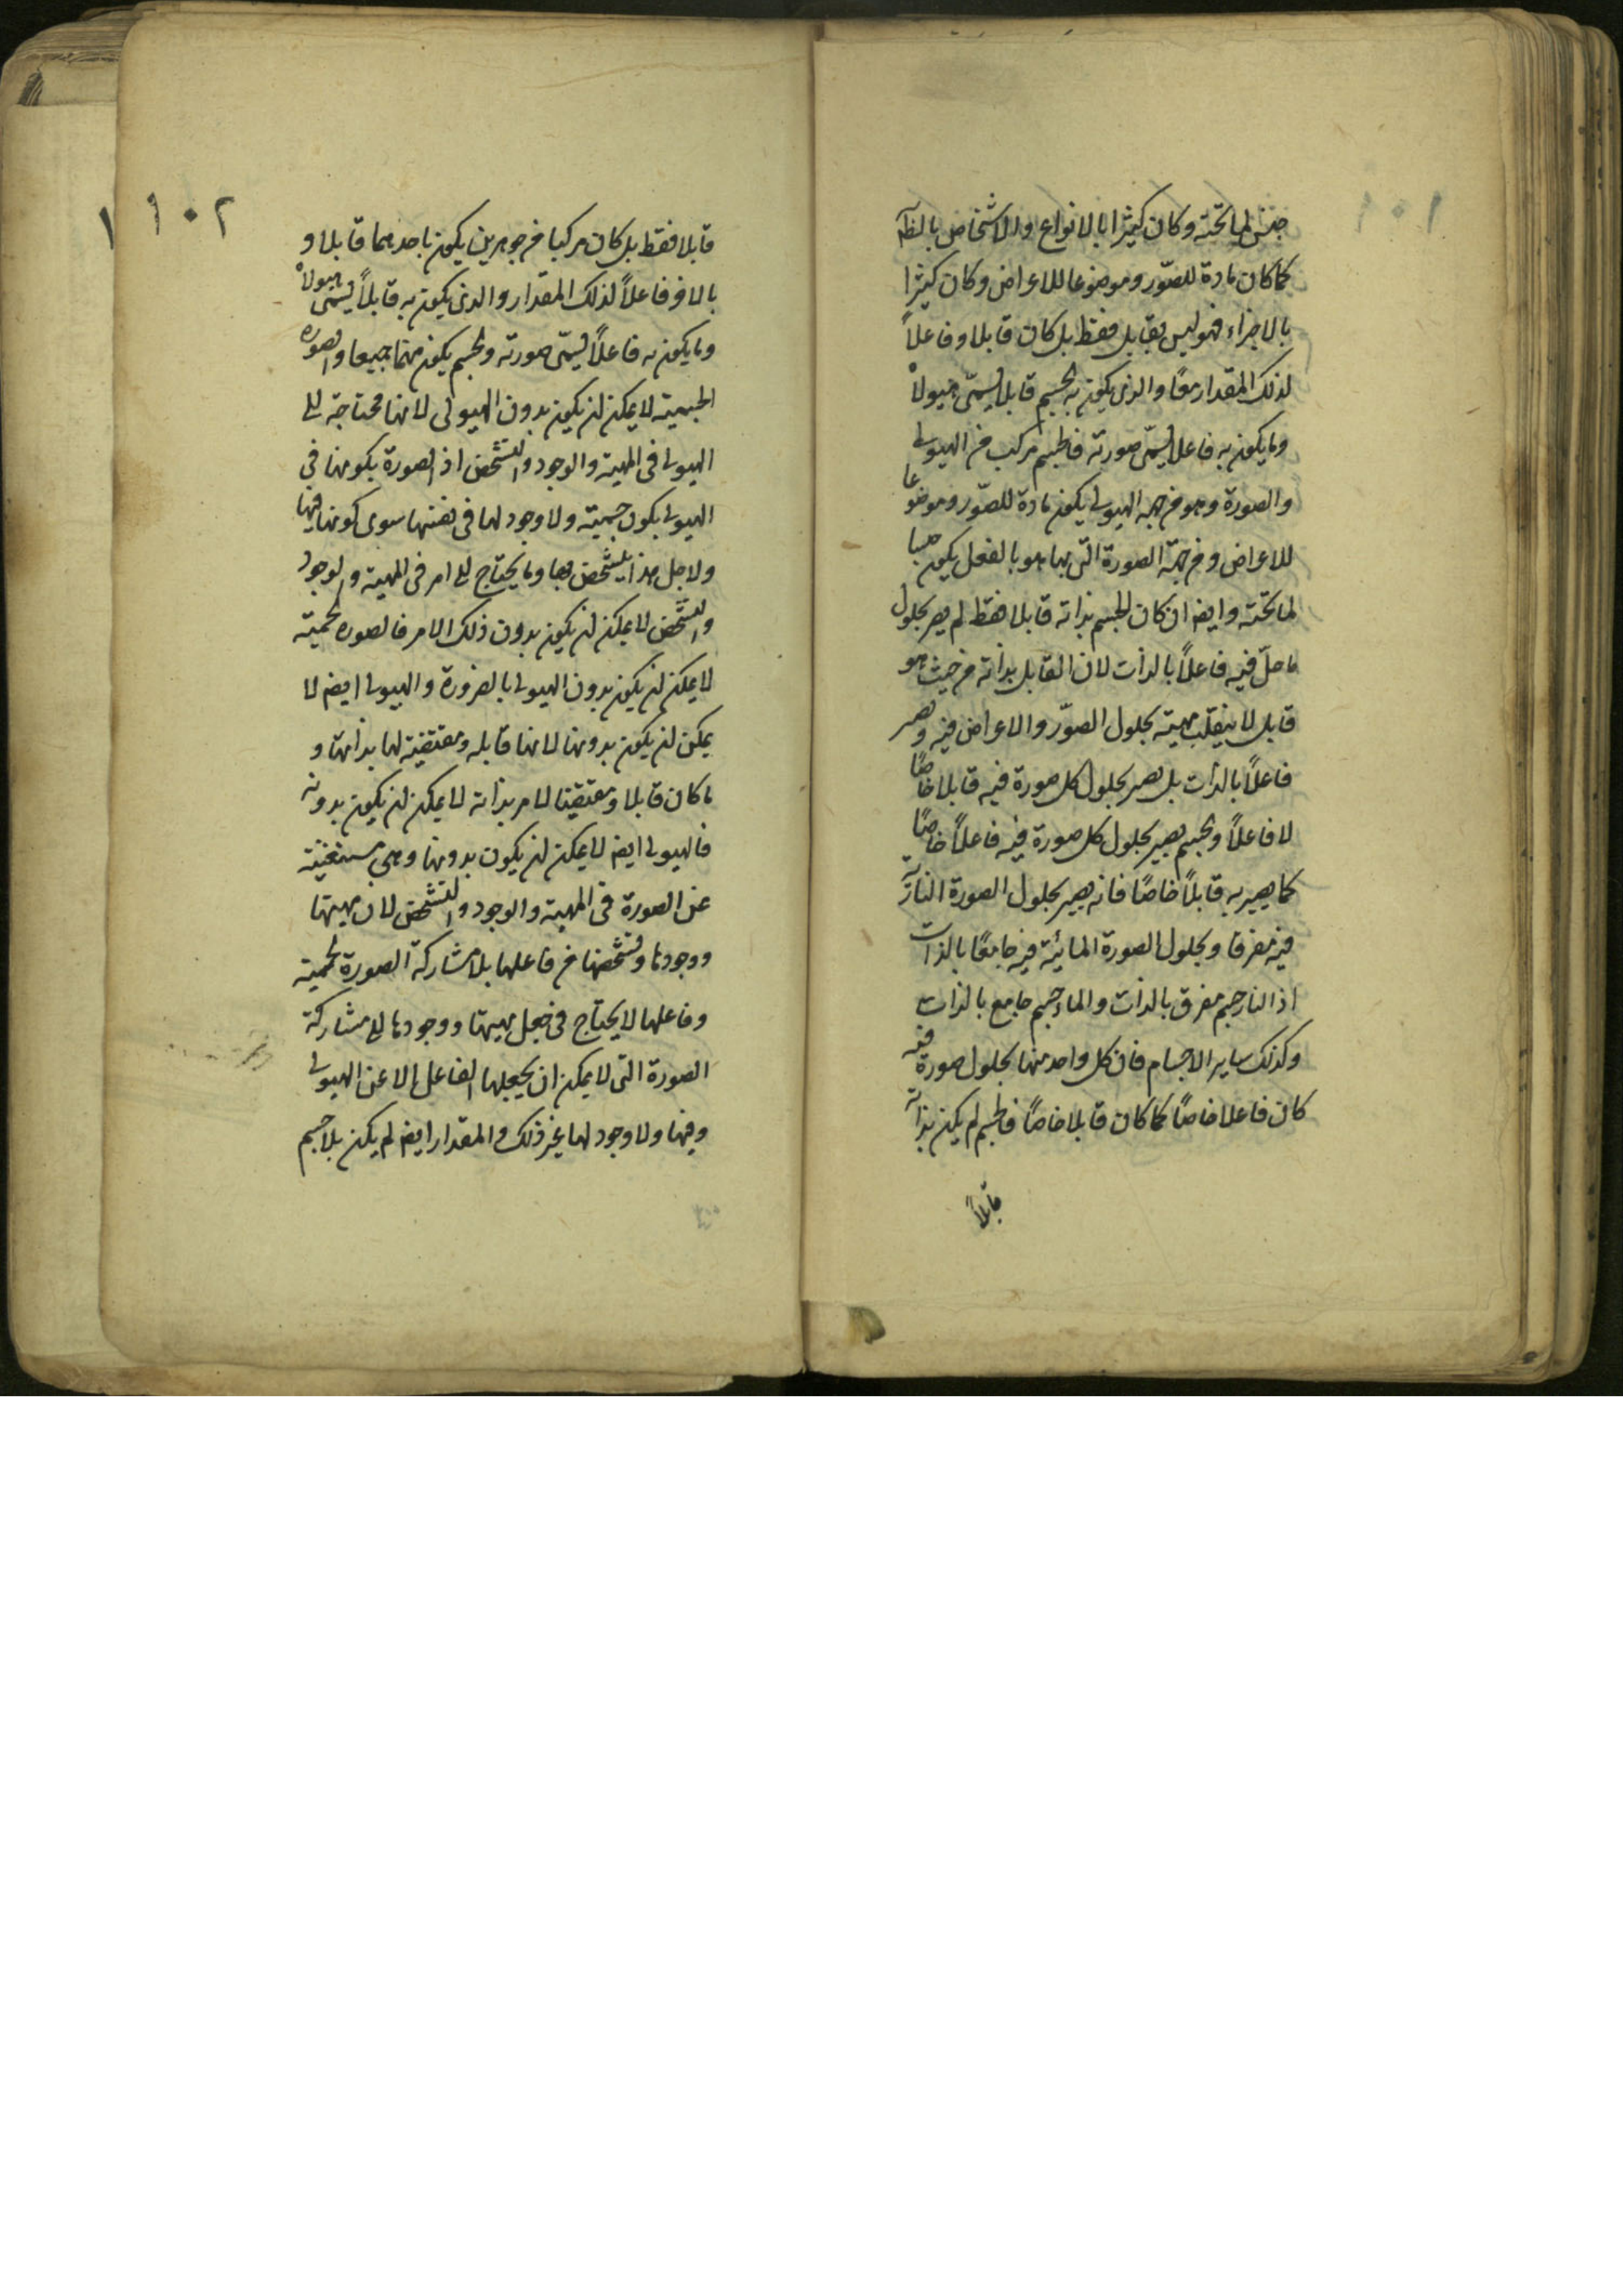 ١٠١
جنس لما تحته وكان كثيرا بالانواع والاشخاص بالظ
كما كان مادة للصوّر وموضوعا للاعراض وكان كثيرا
بالاجزاء فهو ليس بقابل فقط بل كان قابلا وفاعلاً
لذلك المقدار معًا والذى يكون به الجسم قابلا يسمّى هيولاه
وما يكون به فاعلا يسمّى صورته فالجسم مركب من الهيولى
والصورة وهو من جهه الهيولى يكون مادة للصوّر وموضوعا
للاعراض ومن جهة الصورة التى بها هو بالفعل يكون جنسا
لما تحته وايضا ان كان الجسم بذاته قابلا فقط لم يصر بحلول
ما حلّ فيه فاعلاً بالذات لان القابل بذاته من حيث هو
قابل لا ينقلب مهيته بحلول الصوّر والاعراض فيه ويصير
فاعلاً بالذات بل يصير بحلول كل صورة فيه قابلا خاصًا
لا فاعلاً والجسم يصير بحلول كل صورة فيه فاعلاً خاصًا
كما يصير به قابلاً خاصًا فانه يصير بحلول الصورة النارية
فيه مفرقا وبحلول الصورة المائية فيه جامعًا بالذات
اذ النار جسم مفرق بالذات والماء جسم جامع بالذات
وكذلك ساير الاجسام فان كل واحد منها بحلول صورة فيه
كان فاعلا خاصًا كما كان قابلا خاصًا فالجسم لم يكن بذاته
قابلاً
١٠٢
قابلا فقط بل كان مركبا من جوهرين يكون باحدهما قابلا و
بالاخر فاعلاً لذلك المقدار والذى يكون به قابلاً يسمّى هيولاه
وما يكون به فاعلاً يسمّى صورته والجسم يكون منهما جميعا والصوره
الجسمية لا يمكن ان يكون بدون الهيولى لانها محتاجة الى
الهيولى فى المهية والوجود والتشخص اذ الصورة بكونها فى
الهيولى يكون جسمية ولا وجود لها فى نفسها سوى كونها فيها
ولاجل هذا يتشخص بها وما يحتاج الى امر فى المهية والوجود
والتشخص لا يمكن ان يكون بدون ذلك الامر فالصوره الجسمية
لا يمكن ان يكون بدون الهيولى بالضرورة والهيولى ايضا لا
يمكن ان يكون بدونها لانها قابله ومقتضية لها بذاتها و
ما كان قابلا ومقتضيا لامر بذاته لا يمكن ان يكون بدونه
فالهيولى ايضا لا يمكن ان يكون بدونها وهى مستغنية
عن الصورة فى المهية والوجود والتشخص لان مهيتها
ووجودها وتشخصها من فاعلها بلا مشاركة الصورة الجسمية
وفاعلها لا يحتاج فى جعل مهيتها ووجودها الى مشاركة
الصورة التى لا يمكن ان يجعلها الفاعل الا عن الهيولى
وفيها ولا وجود لها غير ذلك والمقدار ايضا لم يكن بلا جسم